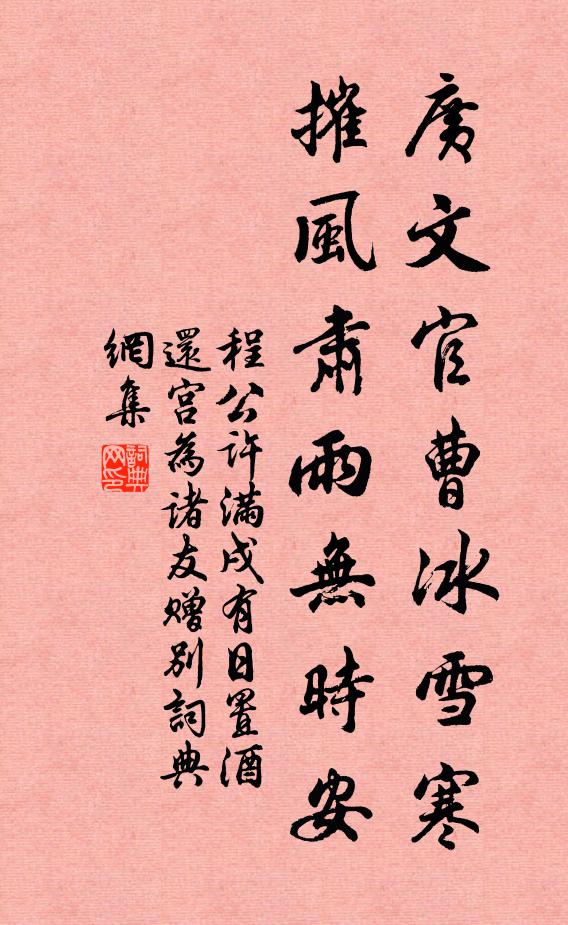 廣文官曹冰雪寒
摧風肅雨無時安
程公許滿戍有日置酒
還宮為諸友贈別詞典
網集
詞典
网印